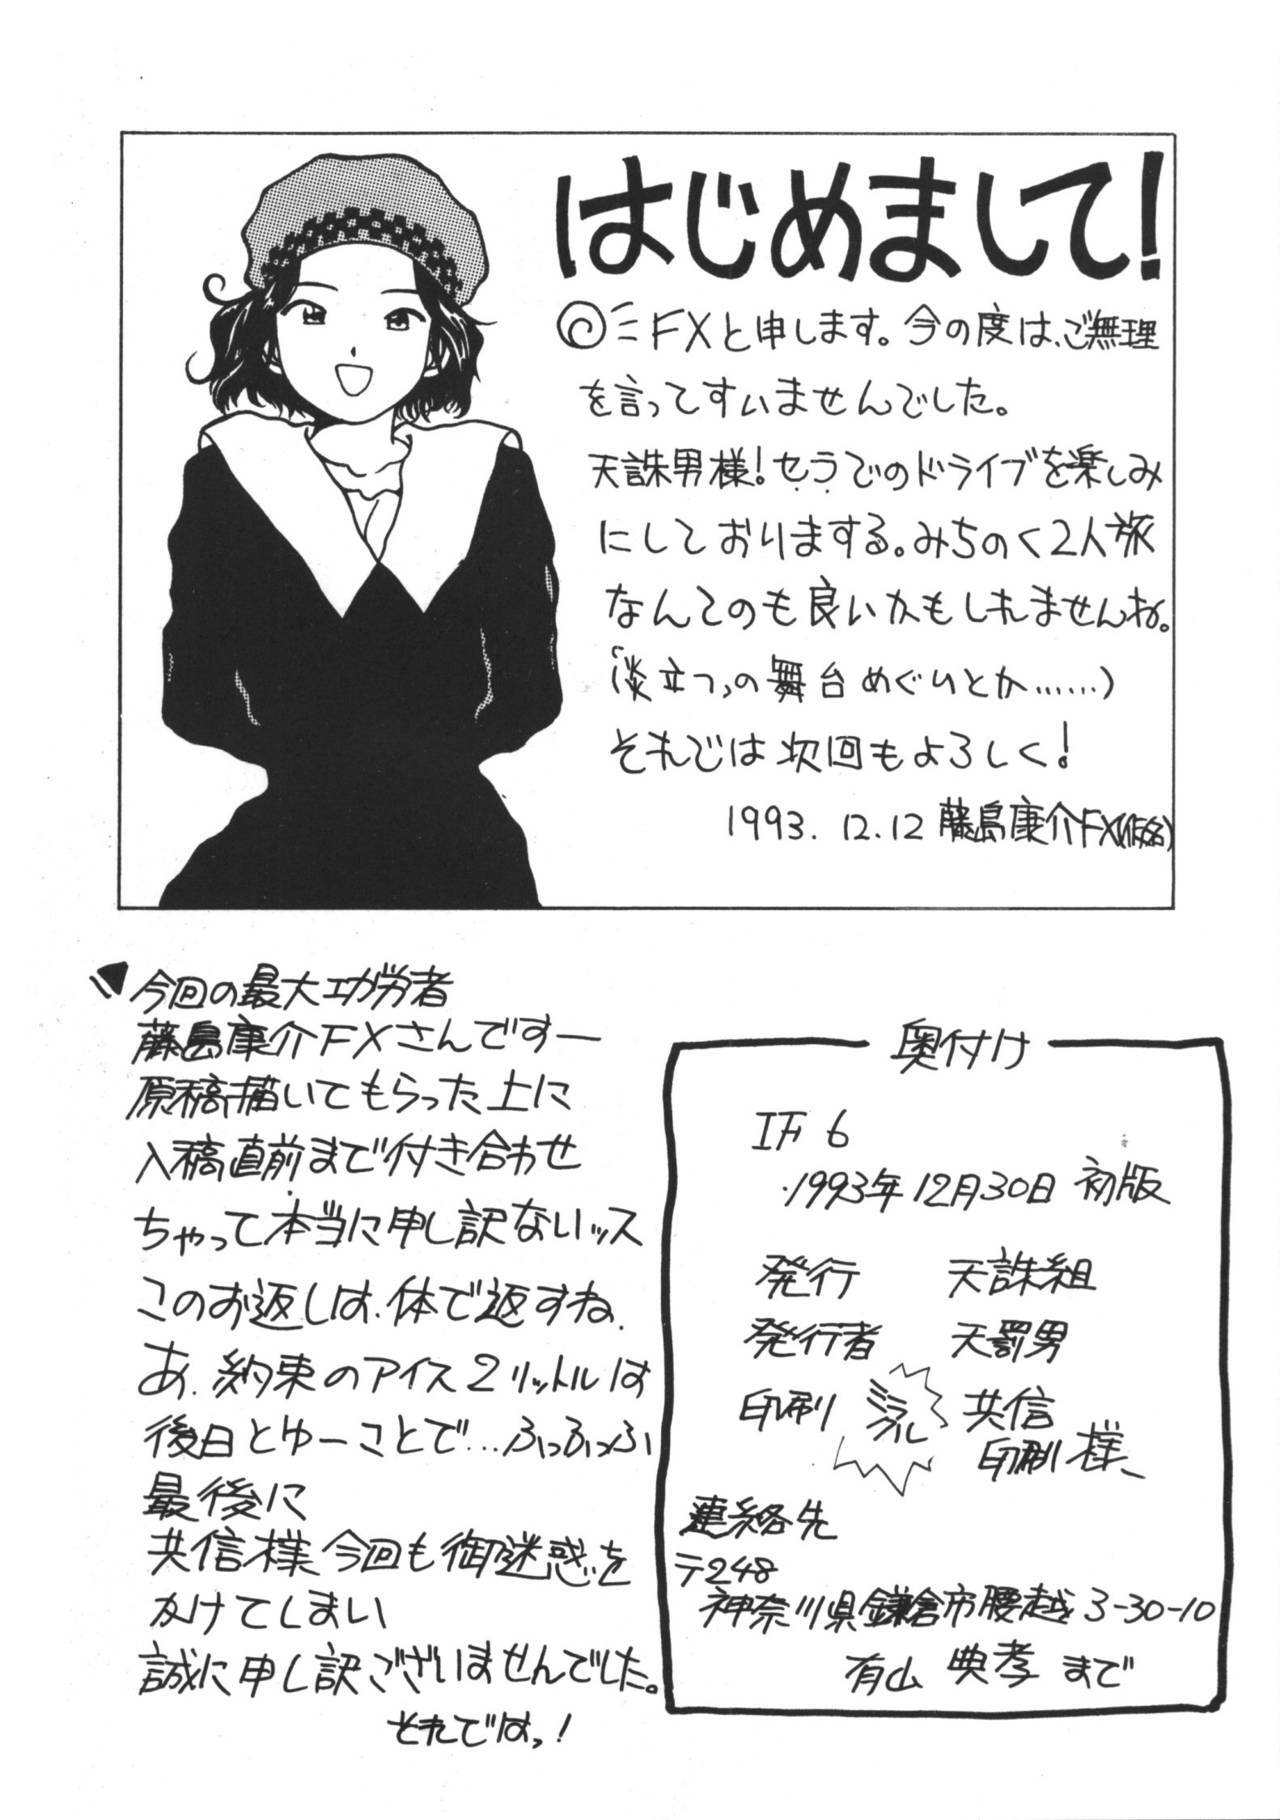 はじめまして!
FXと申します。今の度は、ご無理
を言ってすいませんでした。
天誅男様!セラでのドライブを楽しみ
にしておりまする。みちのく2人旅
なんてのも良いかもしれませんね。
(「炎立つ」の舞台めぐりとか……)
それでは次回もよろしく!
1993.12.12 藤島康介FX(仮名)
今回の最大功労者
藤島康介FXさんですー
原稿描いてもらった上に
入稿直前まで付き合わせ
ちゃって本当に申し訳ないッス
このお返しは、体で返すね、
あ、約束のアイス2リットルは
後日とゆーことで…ふっふっふ
最後に
共信様、今回も御迷惑を
かけてしまい
誠に申し訳ございませんでした。
それではっ!
奥付け
IF 6
1993年12月30日 初版
発行 天誅組
発行者 天罰男
印刷 ミラクル 共信
印刷様、
連絡先
〒248
神奈川県鎌倉市腰越3-30-10
有山 典孝 まで